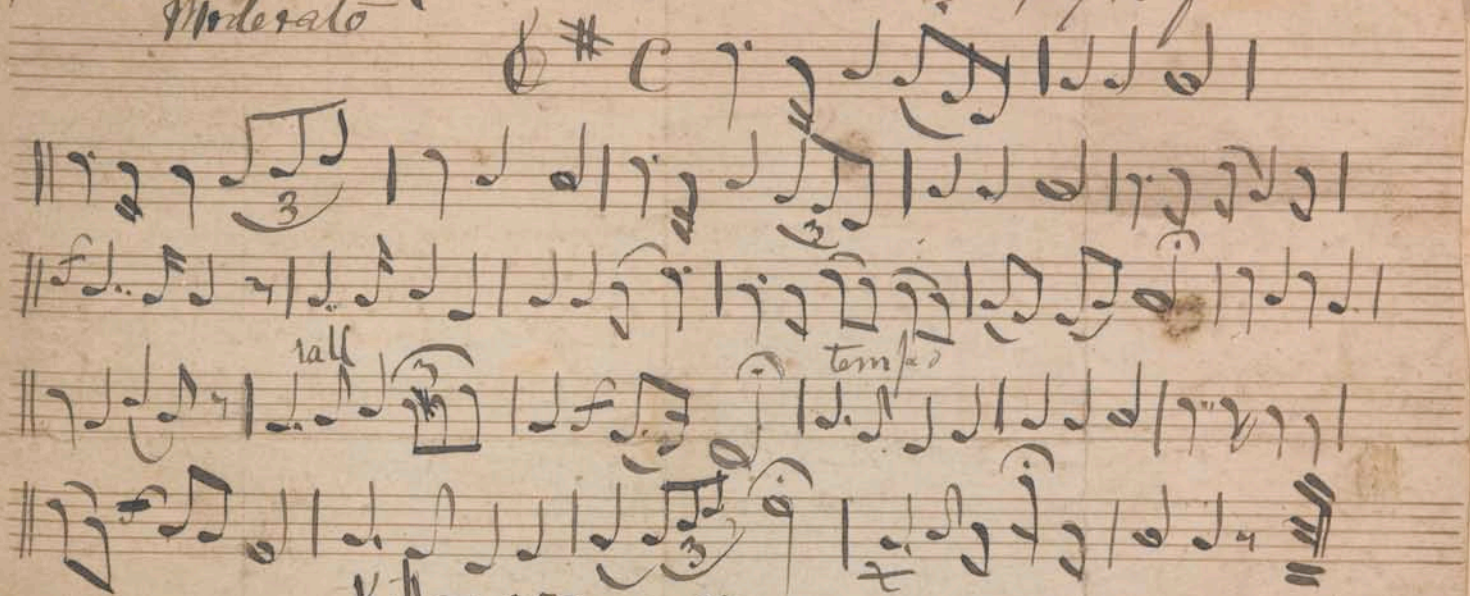 Moderato
3 3
rall tempo
3
3